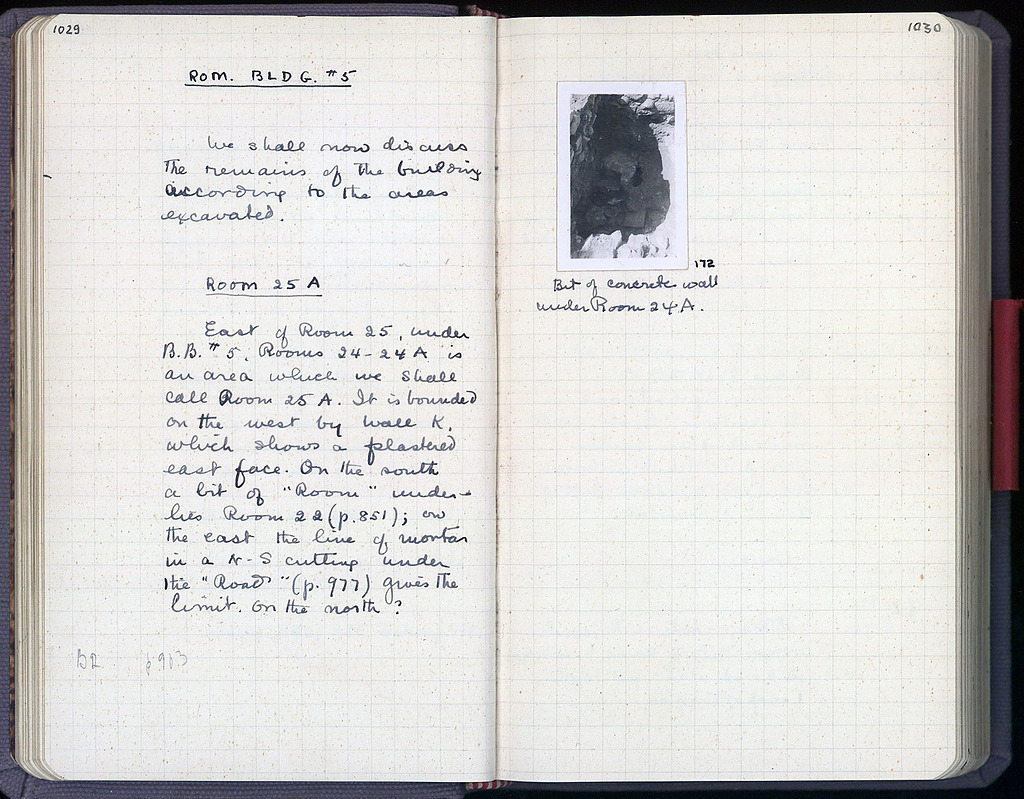 1029
ROM. BLDG. #5
We shall now discuss
the remains of the building
according to the areas
excavated.
ROOM 25 A
East of Room 25, under
B.B. #5, Rooms 24-24A is
an area which we shall
call Room 25A. It is bounded
on the west by wall K,
which shows a plastered
east face. On the south
a bit of "Room" under-
lies Room 22 (p.851); on
the east the line of mortar
in a N-S cutting under
the "Road" (p.977) gives the
limit. On the north?
p903
1030
172
Bit of concrete wall
under Room 24A.